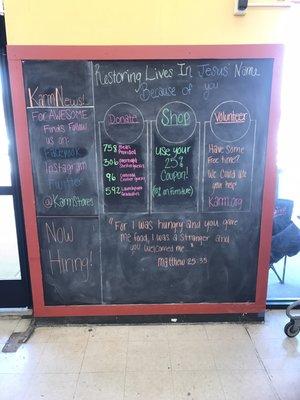 Restoring Lives In Jesus' Name
Because of you
Karm News!
For AWESOME
Finds Follow
us on:
Facebook
Instagram
Twitter
@KarmStores
Now
Hiring!
Donate
758 Meals Provided
306
96
592
Shop
Use your
25%
Coupon!
Volunteer
Have
some
Free time?
We could
use your
help!
Karm.org
"For I was hungry and you gave
me food, I was a stranger and
you welcomed me"
Matthew 25:35